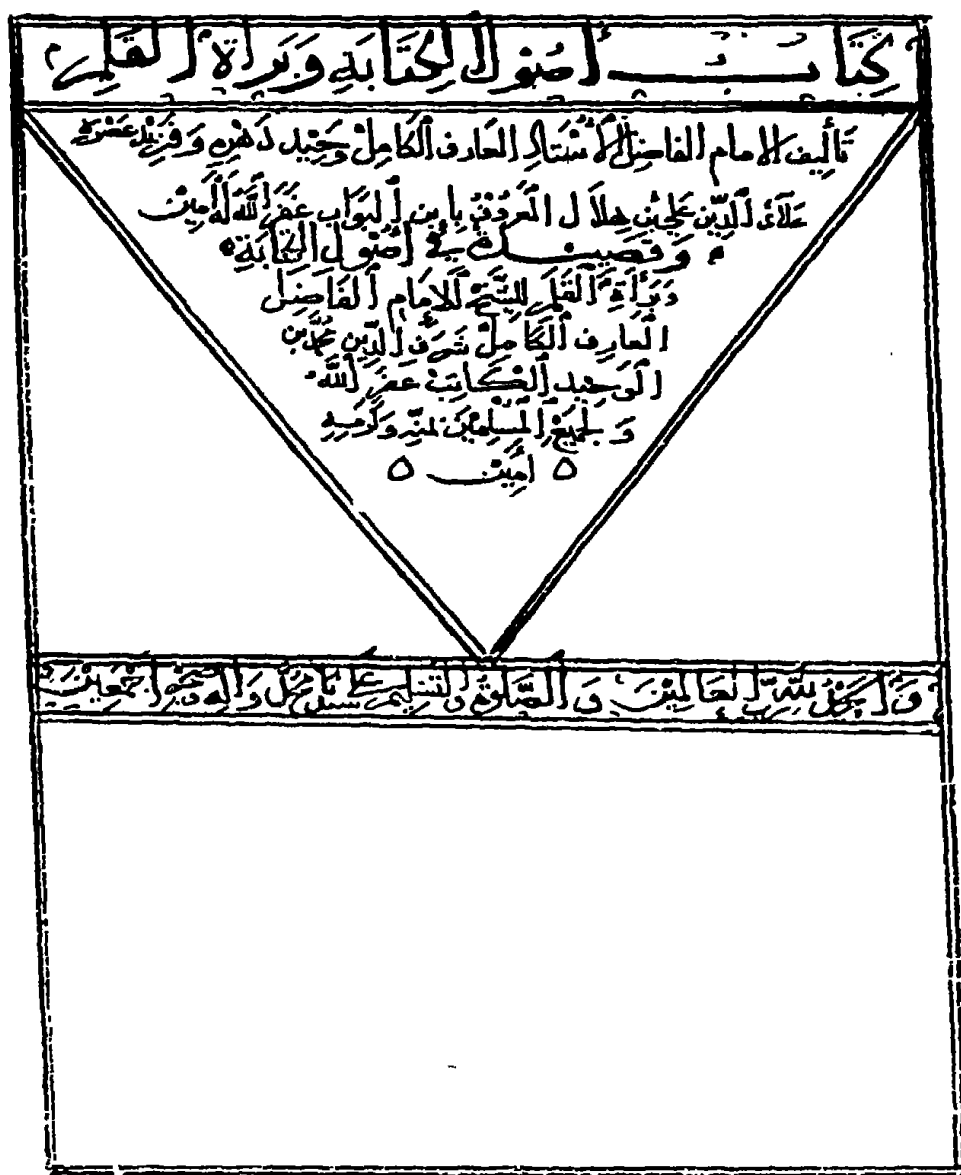 كِتَابُ أُصُولِ الْكِتَابَةِ وَبَرَاةِ الْقَلَمِ
تَأْلِيف الامام الفاضل الأُسْتَاذ العارف الكَامِلْ وَحِيد دَهْرِهِ وَفَرِيْد عَصْرِهِ
عَلَائ الدِّين عَلي بْن هِلَال الْمَعرُوف بِابن الْبَوَاب غَفَرَ اللَّهُ لَهُ أَمِين
وَقَصِيدَة فِي أُصُول الكِتَابَةِ
وَبَرْأَةِ الْقَلَمِ لِلشَّيْخ الْلإمَام الْفَاضِل
الْعَارِف الْكَامِلْ شَرَف الدِّين مُحَمَّد بن
الْوَحِيد الْكَاتِبْ غَفَرَ اللَّهُ
وَلِجَمِيعْ الْمُسْلِمِيْن بِمَنِّهِ وَكَرَمِهِ
أَمِيْن
وَالْحَمْدُ لِلَّهِ رَبِّ الْعَالَمِيْنَ وَالصَّلَوةُ وَالتَّسْلِيم عَلَى سَيِّدِنَا مُحَمَّد وَالِهِ وَصَحْبِهِ اَجْمَعِيْنَ